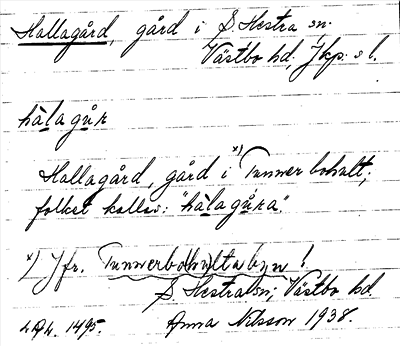 Hallagård, gård i S. Hestra sn.
Västbo hd, Jkp: s l.
hàlagår
Hallagård, gård i x) Tunnerbohult;
folket kallas: "hàlagåra".
x) Jfr. Tunnerbo(hu)ltabyn!
S. Hestra sn, Västbo hd
1495. Anna Nilsson 1938.